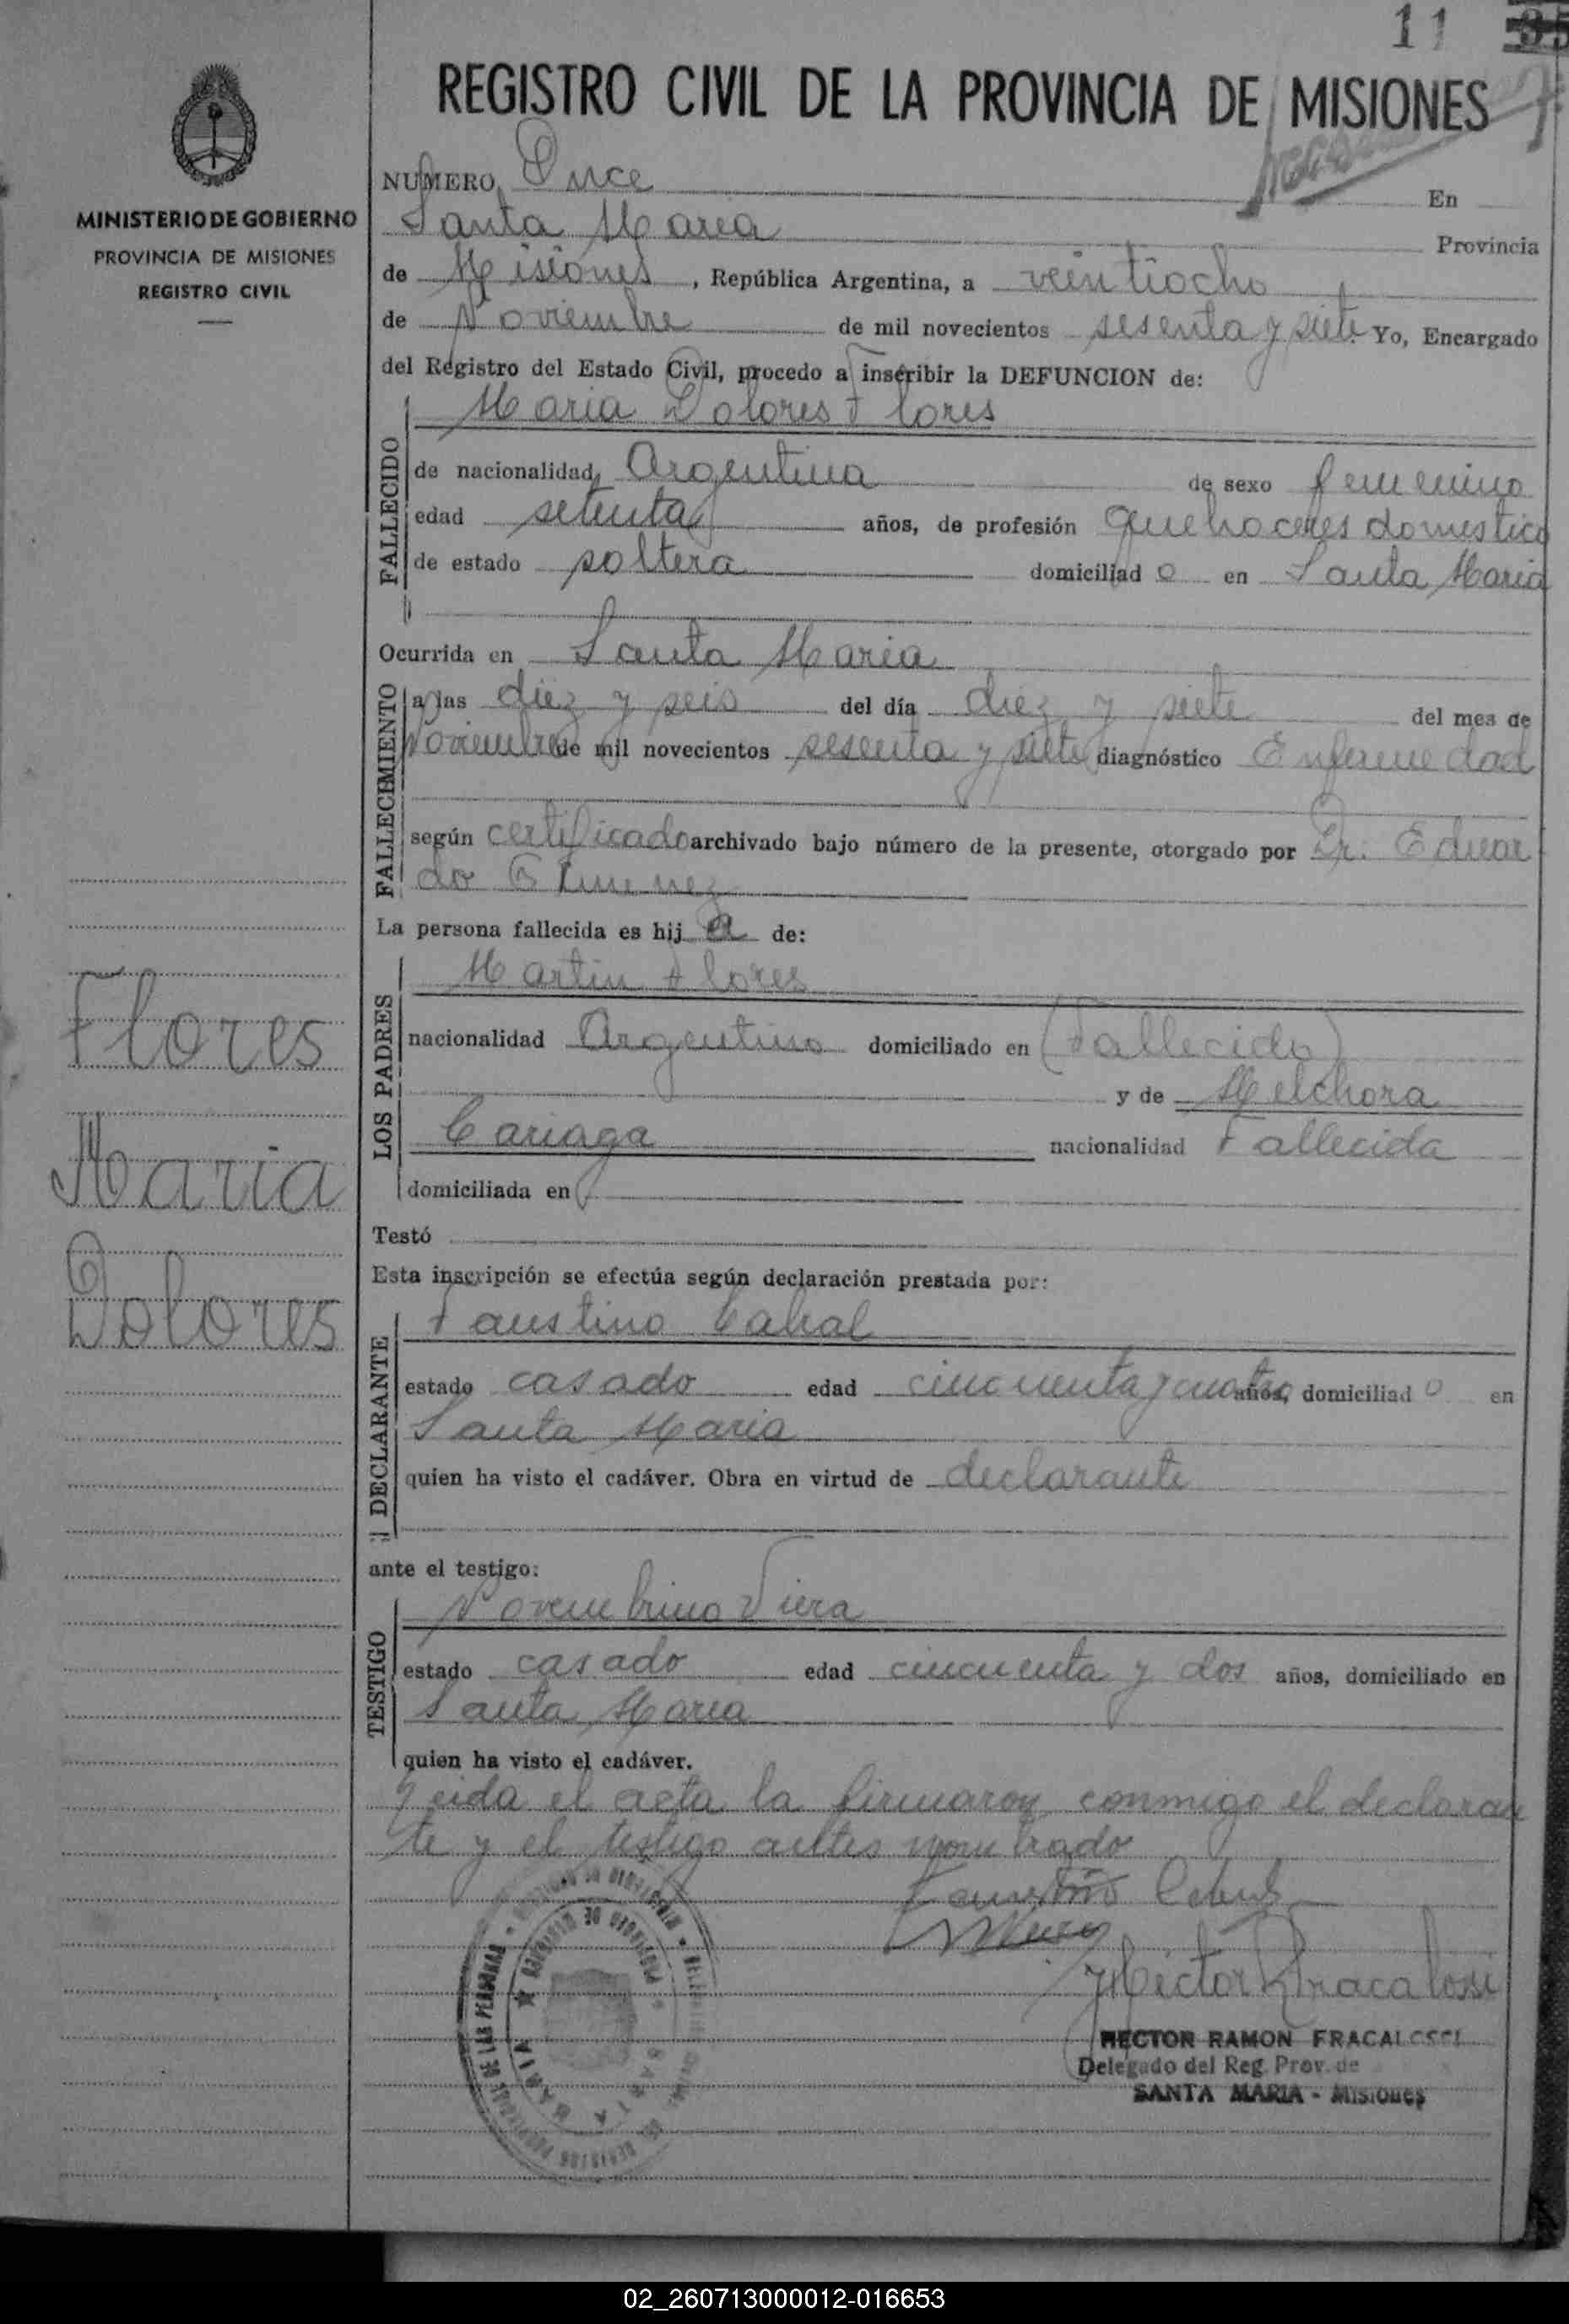 11 35
REGISTRO CIVIL DE LA PROVINCIA DE MISIONES
MINISTERIO DE GOBIERNO
PROVINCIA DE MISIONES
REGISTRO CIVIL
NUMERO Once En
Santa Maria Provincia
de Misiones, República Argentina, a veintiocho
de Noviembre de mil novecientos sesenta y siete Yo, Encargado
del Registro del Estado Civil, procedo a inscribir la DEFUNCION de:
FALLECIDO
Maria Dolores Flores
de nacionalidad Argentina de sexo femenino
edad setenta años, de profesión quehaceres domestico
de estado soltera domiciliado en Santa Maria
Ocurrida en Santa Maria
FALLECIMIENTO
a las diez y seis del día diez y siete del mes de
Noviembre de mil novecientos sesenta y siete diagnóstico Enfermedad
según certificado archivado bajo número de la presente, otorgado por Dr. Eduar
do
La persona fallecida es hija de:
LOS PADRES
Martin Flores
nacionalidad Argentino domiciliado en (Fallecido)
y de Melchora
Cariaga nacionalidad Fallecida
domiciliada en
Testó
Esta inscripción se efectúa según declaración prestada por:
DECLARANTE
Faustino Cabral
estado casado edad cincuenta y cuatro años, domiciliado en
Santa Maria
quien ha visto el cadáver. Obra en virtud de declarante
ante el testigo:
TESTIGO
Novembrino Viera
estado casado edad cincuenta y dos años, domiciliado en
Santa Maria
quien ha visto el cadáver.
Leida el acta la firmaron conmigo el declaran
te y el testigo antes nombrado
Faustino Cabral
Hector R Fracalossi
HECTOR RAMON FRACALOSSI
Delegado del Reg. Prov. de
SANTA MARIA - Misiones
Flores
Maria
Dolores
02_260713000012-016653